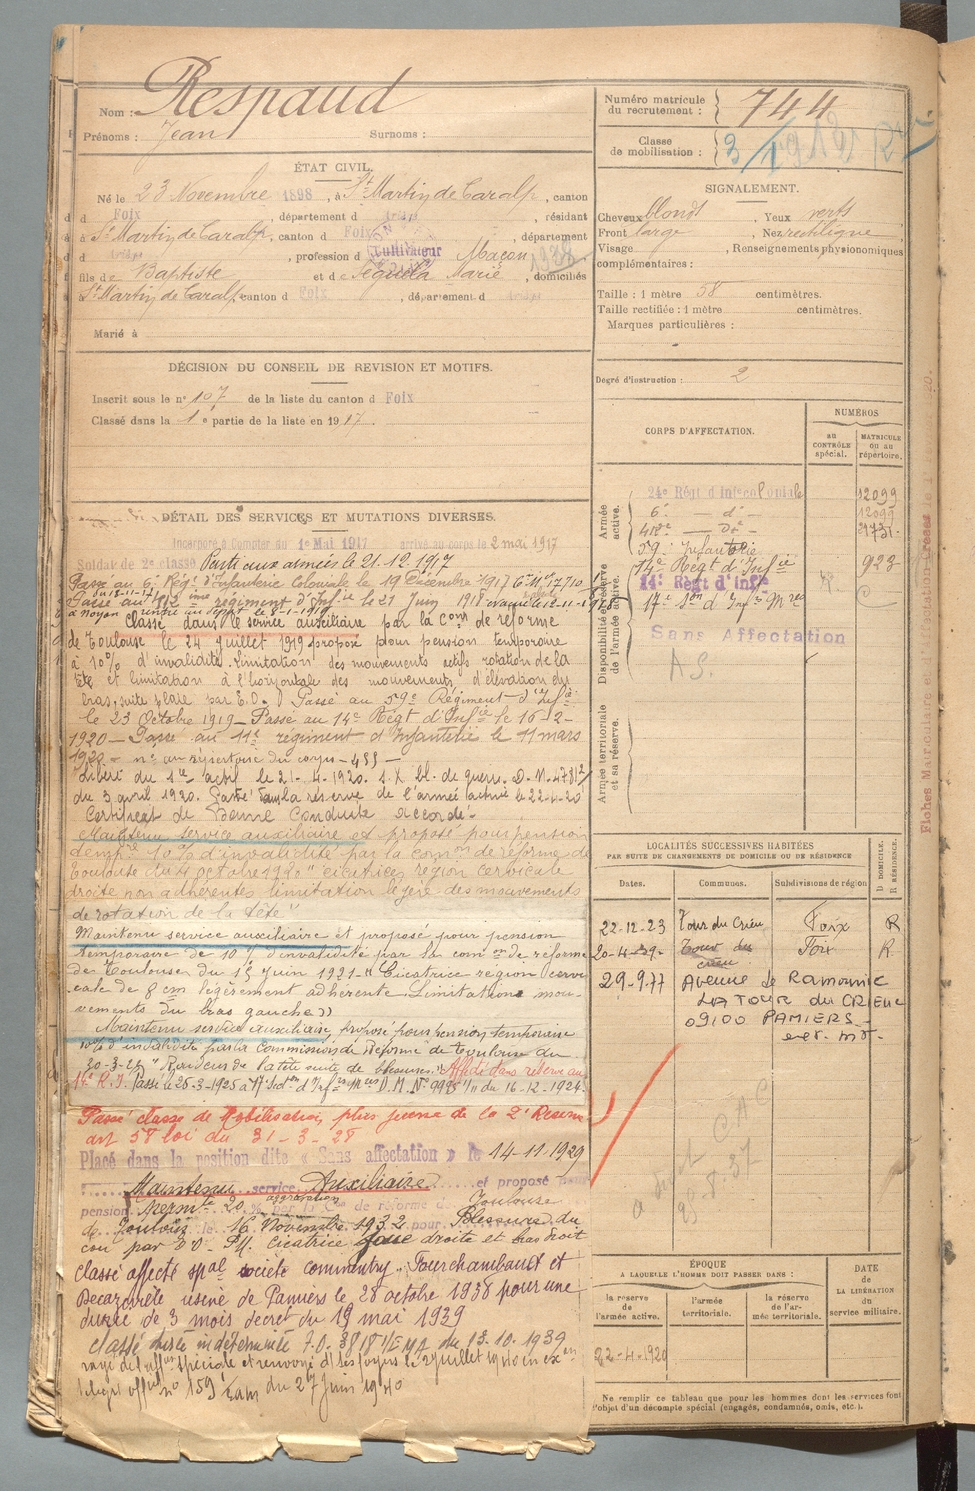 Nom : Respaud
Prénoms : Jean Surnoms :
ÉTAT CIVIL.
Né le 23 Novembre 1898, à St Martin de Caralp, canton
d Foix, département d Ariège, résidant
à St Martin de Caralp, canton d Foix, département
d Ariège, profession d Cultivateur Maçon 1938
fils de Baptiste et de Séguéla Marie, domiciliés
St Martin de Caralp canton d Foix, département d Ariège
Marié à
DÉCISION DU CONSEIL DE REVISION ET MOTIFS.
Inscrit sous le n° 107 de la liste du canton d Foix
Classé dans la 1e partie de la liste en 1917.
DÉTAIL DES SERVICES ET MUTATIONS DIVERSES.
Incorporé à Compter du 1er Mai 1917 arrivé au corps le 2 mai 1917
Soldat de 2e classe Parti aux armées le 21.12.1917
Passé au 6e Rég. d'Infanterie Coloniale le 19 Décembre 1917
Passé au 412ème régiment d'Infie le 21 Juin 1918 évacué le
à Noyon rentré au dépôt le 8-1-1919
Classé dans le service auxiliaire par la Cons de réforme
de Toulouse le 24 Juillet 1919 proposé pour pension temporaire
à 10% d'invalidité. Limitation des mouvements actifs rotation de la
tête et limitation à l'horizontale des mouvements d'élévation du
bras, suite plaie par E.O. Passé au 59e Régiment d'Infie
le 23 Octobre 1919 - Passé au 14e Régt d'Infie le 16-2-
1920 - Passé au 11e régiment d'Infanterie le 11 mars
1920 - n° au répertoire du corps - 455 -
Libéré du 1er actif le 21.4.1920. D.M. 4781
du 3 avril 1920. Passé dans la réserve de l'armée active le 22-4-20
Certificat de Bonne Conduite accordé.
Maintenu service auxiliaire et proposé pour pension
tempre 10% d'invalidité par la comon de réforme de
Toulouse du 4 octobre 1920 "cicatrices région cervicale
droite non adhérentes limitation légère des mouvements
de rotation de la tête"
Maintenu service auxiliaire et proposé pour pension
temporaire de 10% d'invalidité par la comon de réforme
de Toulouse du 15 Juin 1921 "Cicatrice région cervi-
cale de 8 cm légèrement adhérente. Limitations mou-
vements du bras gauche"
Maintenu service auxiliaire, proposé pour pension temporaire
10% d'invalidité par la Commission de Réforme de Toulouse du
20-3-25 "Raideur de la tête suite de blessures." Affecté dans réserve au
14e R.I. Passé le 25-3-1925 à 17e Section d'Infres Mres D.M. N° 9995 1/11 du 16-12-1924.
Passé classe de Mobilisation plus jeune de la 2e Réserve
art 58 loi du 31-3-28
Placé dans la position dite « Sans affectation » le 14-11-1929
Maintenu service Auxiliaire et proposé pour
pension Permte 20 % par la Con de réforme d Toulouse
aggravation
de Toulouse le 16 Novembre 1932 pour Blessure du
cou par EO. Cicatrice face droite et bras droit
Classé affecté spal société commentry. Fourchambault et
Decazeville usine de Pamiers le 28 octobre 1938 pour une
durée de 3 mois décret du 19 mai 1939
Classé durée indéterminée du 13-10-1939
rayé de l'affon spéciale et renvoyé d/ ses foyers le 2 juillet 1940 en exon
du 27 juin 1940
Numéro matricule du recrutement : 744
Classe de mobilisation :
SIGNALEMENT.
Cheveux blonds, Yeux verts
Front large, Nez rectiligne
Visage , Renseignements physionomiques
complémentaires :
Taille : 1 mètre 58 centimètres.
Taille rectifiée : 1 mètre centimètres.
Marques particulières :
Degré d'instruction : 2
CORPS D'AFFECTATION.
NUMÉROS
au CONTRÔLE spécial.
MATRICULE ou au répertoire.
Armée active.
24e Régt d'inf coloniale 12099
6e - d° - 12099
412e - D° 9731
59e Infanterie
Disponibilité et réserve de l'armée active.
14e Régt d'Infie 923
14e Régt d'Infie
17e Son d'Infrs Mres
Sans Affectation
A S.
Armée territoriale et sa réserve.
LOCALITÉS SUCCESSIVES HABITÉES
PAR SUITE DE CHANGEMENTS DE DOMICILE OU DE RÉSIDENCE
Dates. Communes. Subdivisions de région D DOMICILE. R RÉSIDENCE.
22-12-23 Tour du Crieu Foix R
20-4-39- Tour du Crieu Foix R.
29-9-77 Avenue de Ramonic
LA TOUR du CRIEUC
09100 PAMIERS
CAC
25-8-37
ÉPOQUE
A LAQUELLE L'HOMME DOIT PASSER DANS :
la réserve de l'armée active.
l'armée territoriale.
la réserve de l'armée territoriale.
DATE de LA LIBÉRATION du service militaire.
22-4-1920
Ne remplir ce tableau que pour les hommes dont les services font
l'objet d'un décompte spécial (engagés, condamnés, omis, etc.).